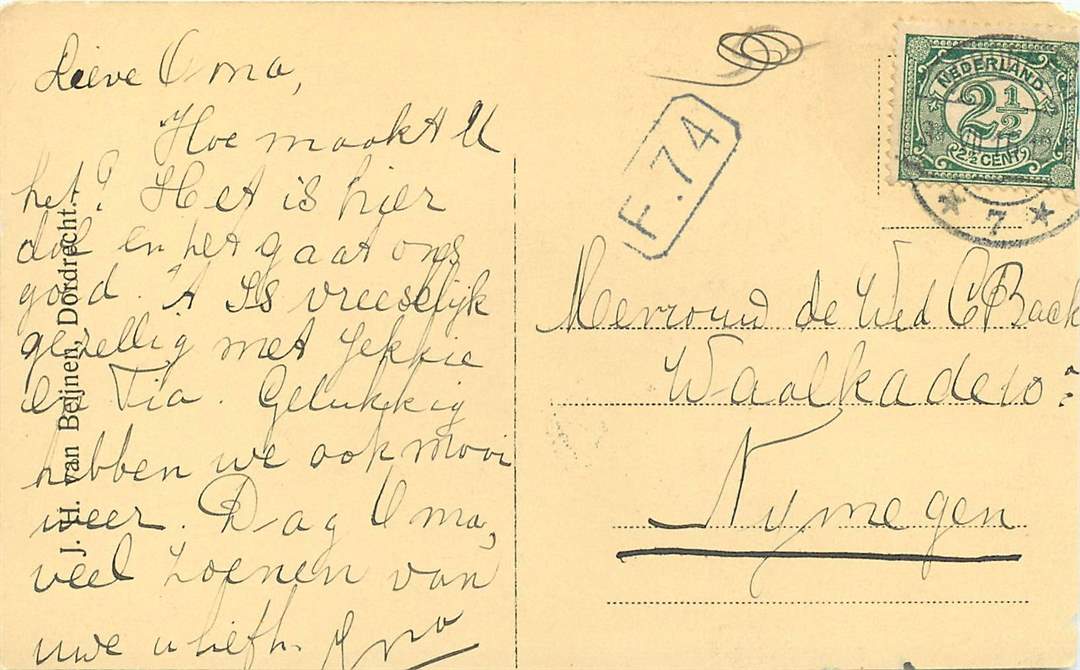 Lieve Oma,
Hoe maakt U
het? Het is hier
dol en het gaat ons
goed. 't Is vreeselijk
gezellig met Jekkie
en Tia. Gelukkig
hebben we ook mooi
weer. Dag Oma,
veel zoenen van
uwe u liefh.
J. H. van Beijnen, Dordrecht.
F.74
NEDERLAND
2 1/2
2½ CENT
7
Mevrouw de Wed C Back
Waalkade 10
Nymegen